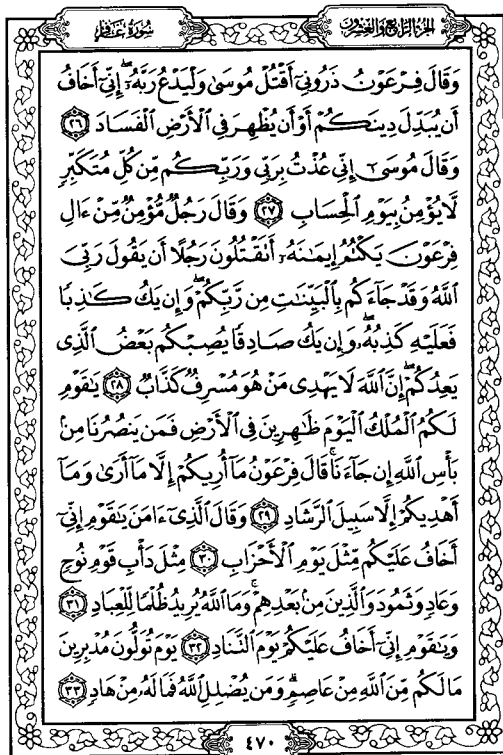 الجزء الرابع والعشرون
سورة غافر
وَقَالَ فِرْعَوْنُ ذَرُونِيٓ أَقْتُلْ مُوسَىٰ وَلْيَدْعُ رَبَّهُۥٓ ۖ إِنِّيٓ أَخَافُ
أَن يُبَدِّلَ دِينَكُمْ أَوْ أَن يُظْهِرَ فِى ٱلْأَرْضِ ٱلْفَسَادَ ٢٦
وَقَالَ مُوسَىٰٓ إِنِّى عُذْتُ بِرَبِّى وَرَبِّكُم مِّن كُلِّ مُتَكَبِّرٍ
لَّا يُؤْمِنُ بِيَوْمِ ٱلْحِسَابِ ٢٧ وَقَالَ رَجُلٌ مُّؤْمِنٌ مِّنْ ءَالِ
فِرْعَوْنَ يَكْتُمُ إِيمَٰنَهُۥٓ أَتَقْتُلُونَ رَجُلًا أَن يَقُولَ رَبِّىَ
ٱللَّهُ وَقَدْ جَآءَكُم بِٱلْبَيِّنَٰتِ مِن رَّبِّكُمْ ۖ وَإِن يَكُ كَٰذِبًا
فَعَلَيْهِ كَذِبُهُۥ ۖ وَإِن يَكُ صَادِقًا يُصِبْكُم بَعْضُ ٱلَّذِى
يَعِدُكُمْ ۖ إِنَّ ٱللَّهَ لَا يَهْدِى مَنْ هُوَ مُسْرِفٌ كَذَّابٌ ٢٨ يَٰقَوْمِ
لَكُمُ ٱلْمُلْكُ ٱلْيَوْمَ ظَٰهِرِينَ فِى ٱلْأَرْضِ فَمَن يَنصُرُنَا مِنۢ
بَأْسِ ٱللَّهِ إِن جَآءَنَا ۚ قَالَ فِرْعَوْنُ مَآ أُرِيكُمْ إِلَّا مَآ أَرَىٰ وَمَآ
أَهْدِيكُمْ إِلَّا سَبِيلَ ٱلرَّشَادِ ٢٩ وَقَالَ ٱلَّذِىٓ ءَامَنَ يَٰقَوْمِ إِنِّىٓ
أَخَافُ عَلَيْكُم مِّثْلَ يَوْمِ ٱلْأَحْزَابِ ٣٠ مِثْلَ دَأْبِ قَوْمِ نُوحٍ
وَعَادٍ وَثَمُودَ وَٱلَّذِينَ مِنۢ بَعْدِهِمْ ۚ وَمَا ٱللَّهُ يُرِيدُ ظُلْمًا لِّلْعِبَادِ ٣١
وَيَٰقَوْمِ إِنِّىٓ أَخَافُ عَلَيْكُمْ يَوْمَ ٱلتَّنَادِ ٣٢ يَوْمَ تُوَلُّونَ مُدْبِرِينَ
مَا لَكُم مِّنَ ٱللَّهِ مِنْ عَاصِمٍ ۗ وَمَن يُضْلِلِ ٱللَّهُ فَمَا لَهُۥ مِنْ هَادٍ ٣٣
٤٧٠